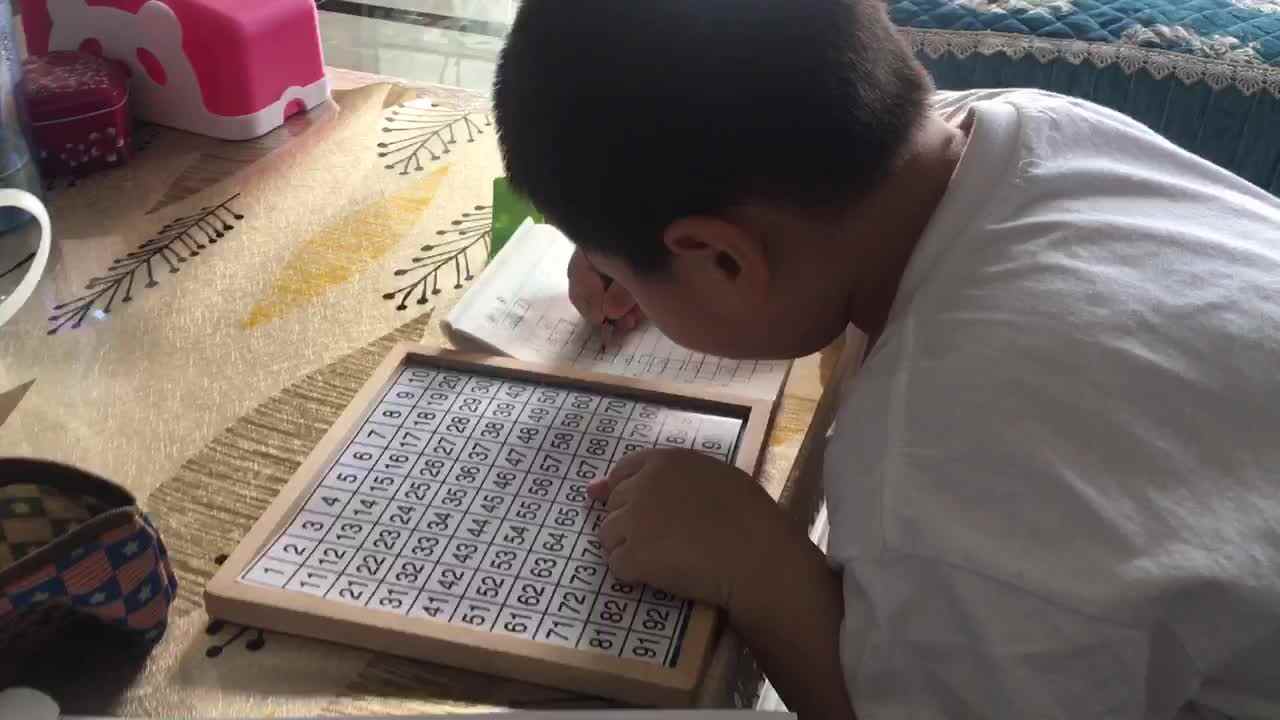 1 2 3 4 5 6 7 8 9 10
11 12 13 14 15 16 17 18 19 20
21 22 23 24 25 26 27 28 29 30
31 32 33 34 35 36 37 38 39 40
41 42 43 44 45 46 47 48 49 50
51 52 53 54 55 56 57 58 59 60
61 62 63 64 65 66 67 68 69 70
71 72 73 74 79 80
81 82
91 92